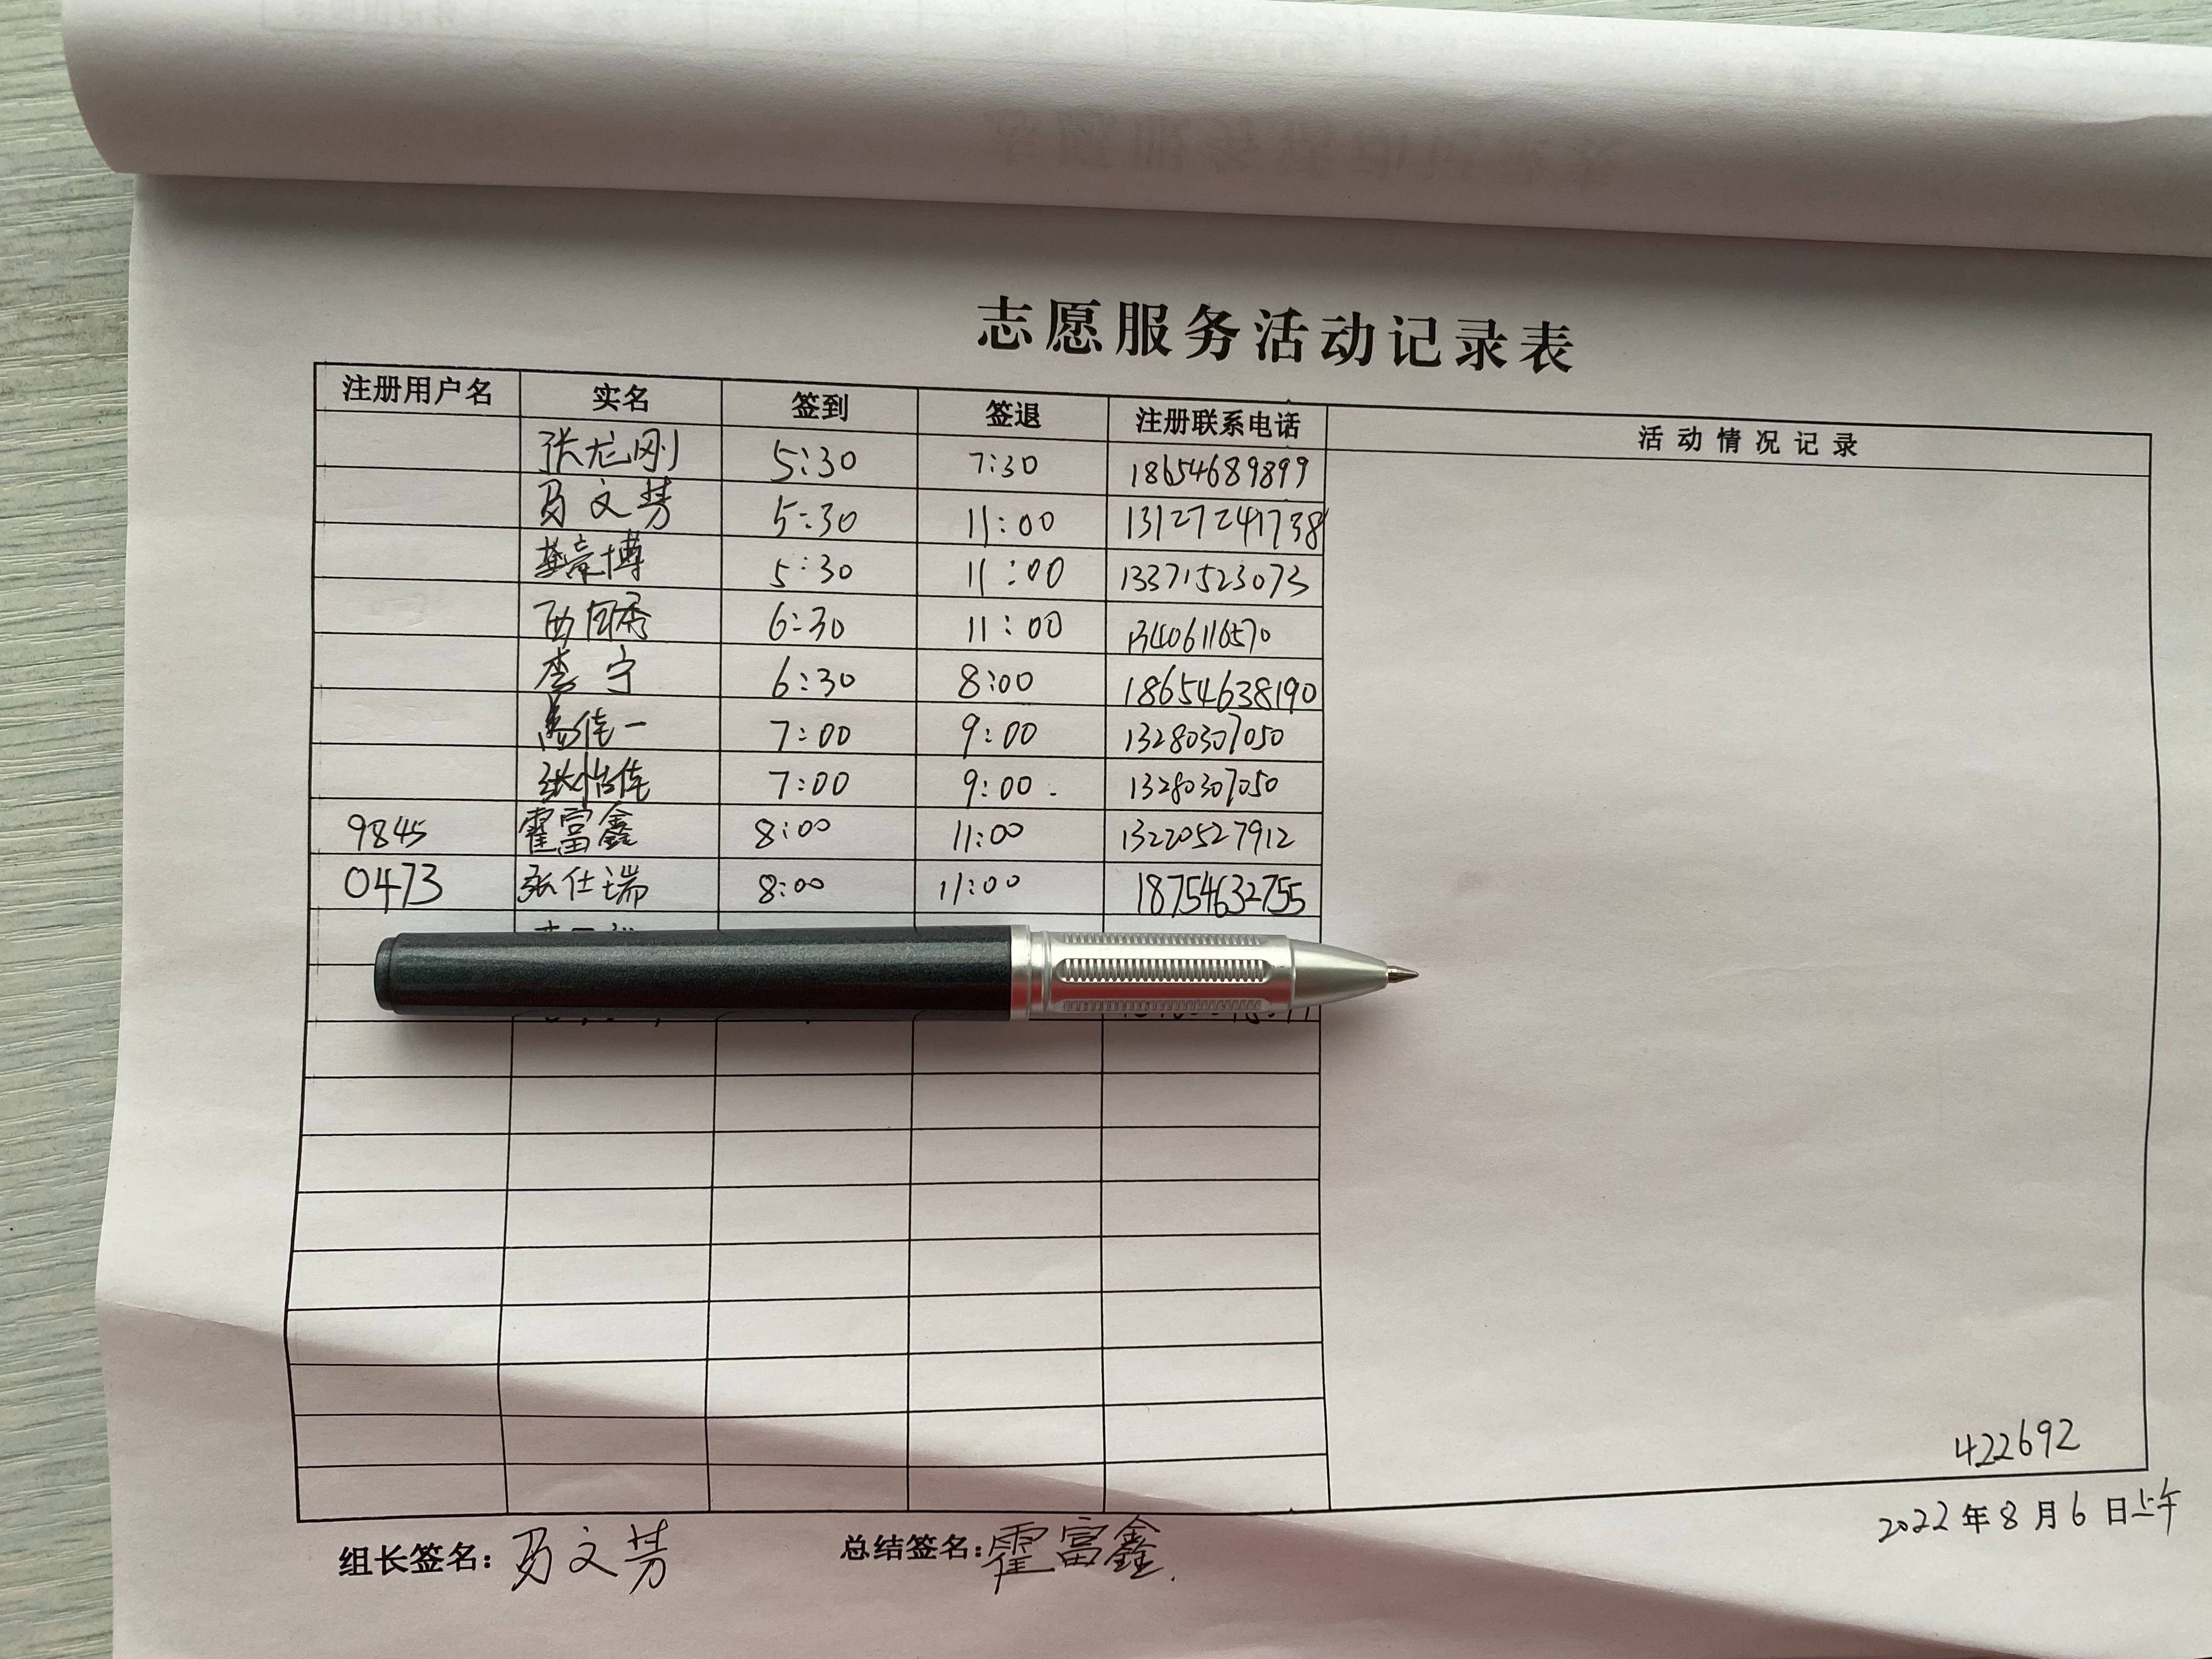 志愿服务活动记录表
注册用户名 实名 签到 签退 注册联系电话 活动情况记录
张龙刚 5:30 7:30 18654689899
马文芳 5:30 11:00 13127241738
5:30 11:00 13371523073
6:30 11:00 13406116570
李宁 6:30 8:00 18654638190
佳一 7:00 9:00 13280307050
张怡佳 7:00 9:00 13280307050
9845 霍富鑫 8:00 11:00 13220527912
0473 张仕瑞 8:00 11:00 18754632755
422692
2022年8月6日上午
组长签名：马文芳 总结签名：霍富鑫